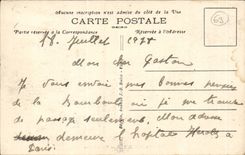 Aucune inscription n'est admise du côté de la Vue
CARTE POSTALE
Partie réservée à la Correspondance
Réservée à l'Adresse
63
18 Juillet
Mon cher Gaston
Je vous envoie mes bonnes pensées
de la Bourboule où je me trouve
de passage seulement. Mon adresse
demeure l'hôpital
Paris